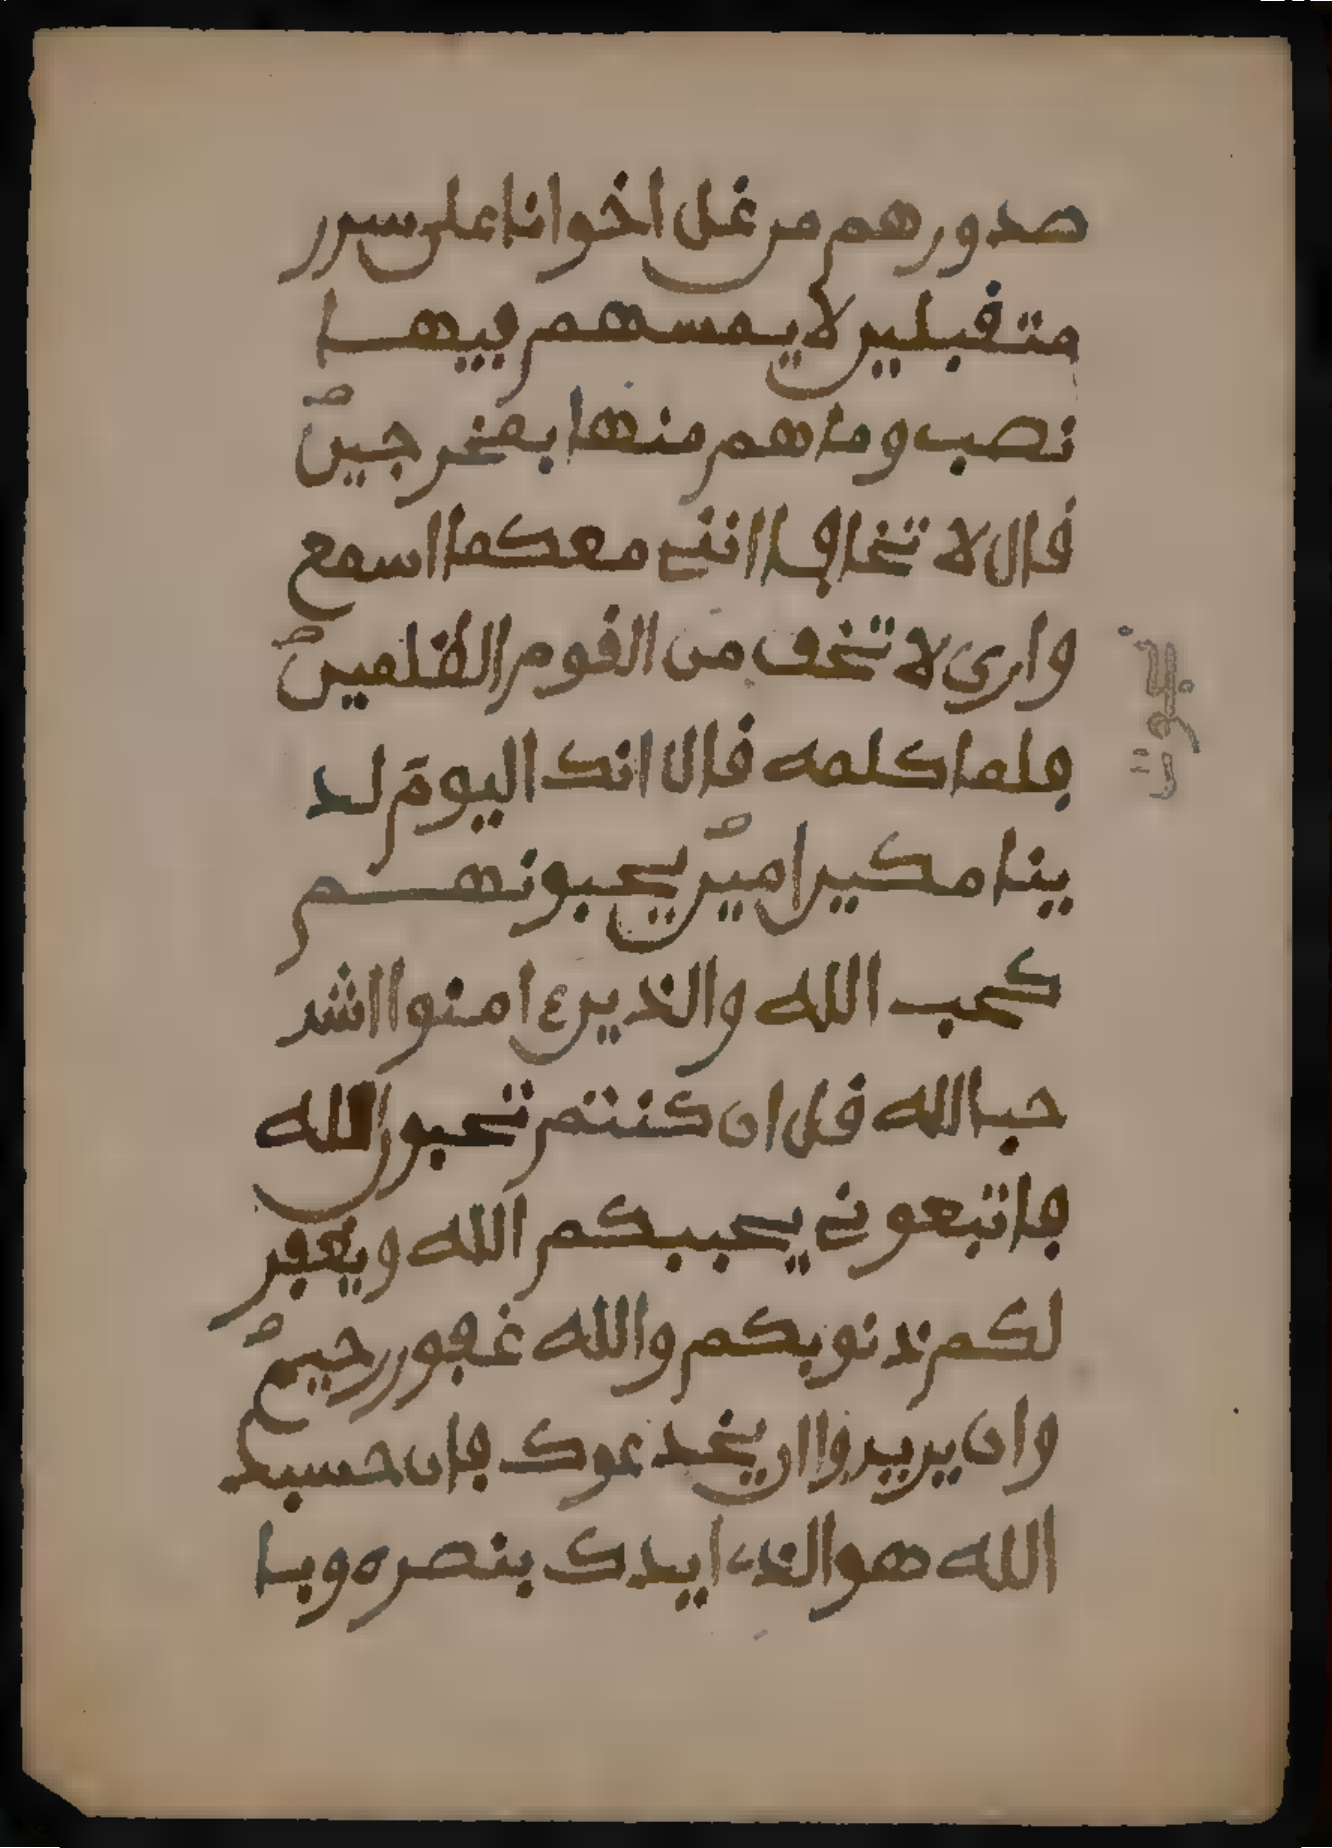 صدورهم من غل اخوانا على سرر
متقبلين لا يمسهم فيها
نصب وما هم منها بمخرجين
قال لا تخافا اننى معكما اسمع
وارى لا تخف من القوم الظلمين
فلما كلمه قال انك اليوم لد
ينا مكين امين يحبونهم
كحب الله والذين ءامنوا اشد
حبا لله قل ان كنتم تحبون الله
فاتبعونى يحببكم الله ويغفر
لكم ذنوبكم والله غفور رحيم
وان يريدوا ان يخدعوك فان حسبك
الله هو الذى ايدك بنصره وبا